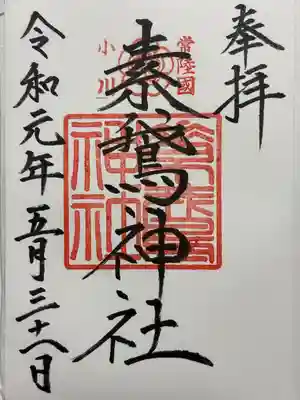 奉拝
常陸國
小川
素鵞神社
令和元年五月三十一日